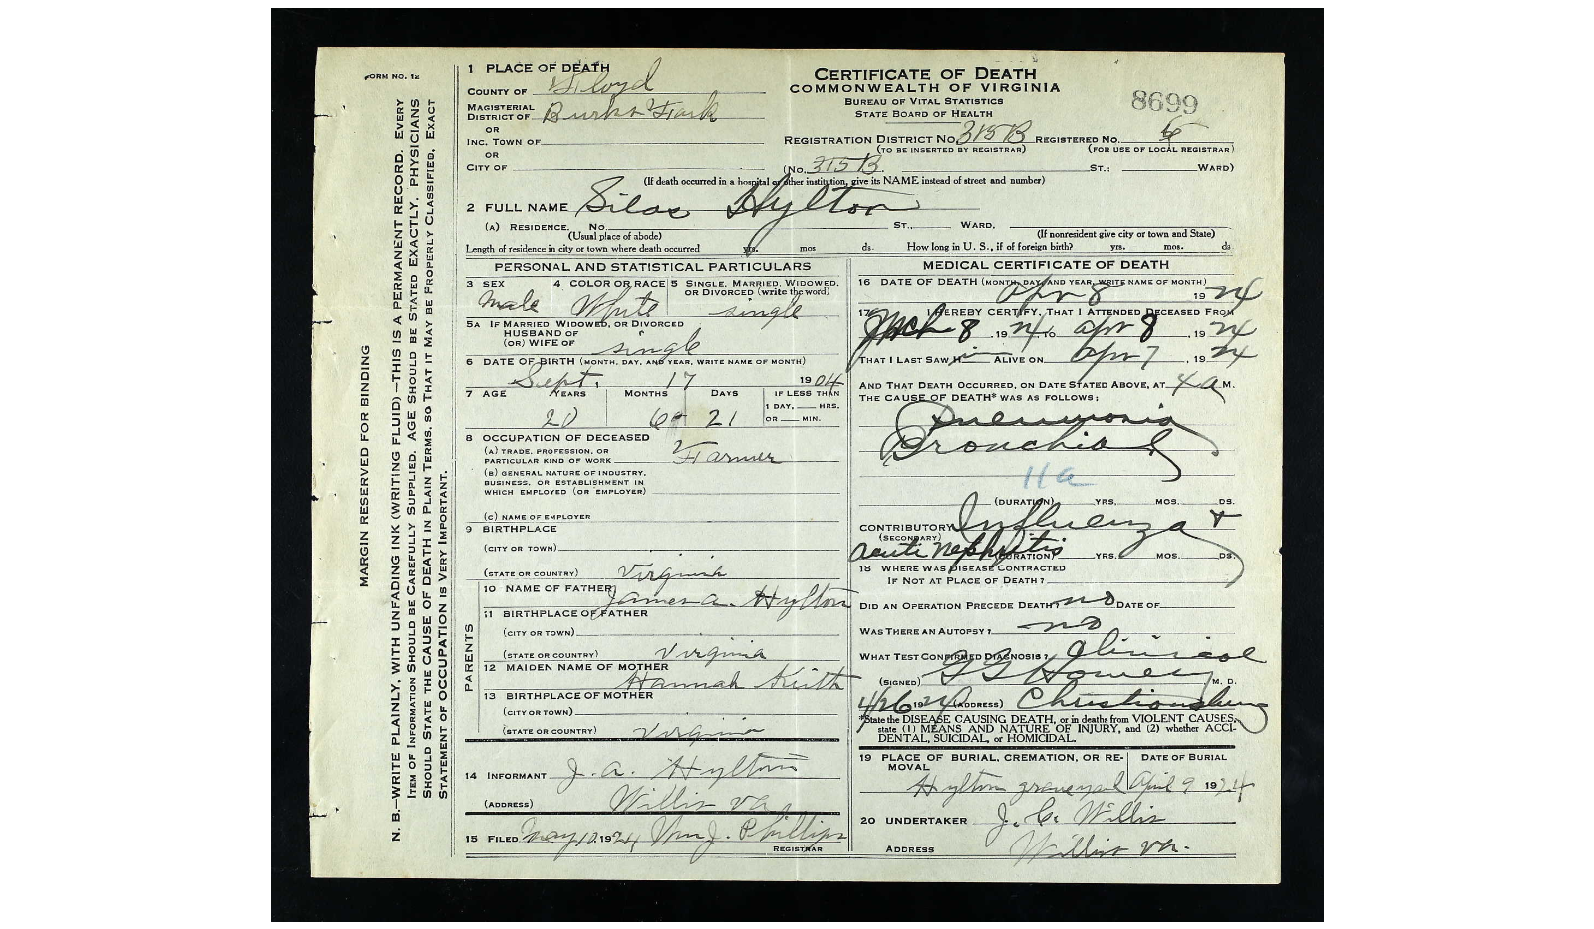 FORM NO. 12
MARGIN RESERVED FOR BINDING
N. B.—WRITE PLAINLY, WITH UNFADING INK (WRITING FLUID)—THIS IS A PERMANENT RECORD. EVERY
ITEM OF INFORMATION SHOULD BE CAREFULLY SUPPLIED. AGE SHOULD BE STATED EXACTLY. PHYSICIANS
SHOULD STATE THE CAUSE OF DEATH IN PLAIN TERMS, SO THAT IT MAY BE PROPERLY CLASSIFIED. EXACT
STATEMENT OF OCCUPATION IS VERY IMPORTANT.
CERTIFICATE OF DEATH
COMMONWEALTH OF VIRGINIA
BUREAU OF VITAL STATISTICS
STATE BOARD OF HEALTH
8699
1 PLACE OF DEATH
COUNTY OF Floyd
MAGISTERIAL
DISTRICT OF Burks Fork
OR
INC. TOWN OF
OR
CITY OF
REGISTRATION DISTRICT NO. 315B REGISTERED NO.
(TO BE INSERTED BY REGISTRAR) (FOR USE OF LOCAL REGISTRAR)
(No. 315B. ST.; WARD)
(If death occurred in a hospital or other institution, give its NAME instead of street and number)
2 FULL NAME Silas Hylton
(A) RESIDENCE. No. ST., WARD.
(Usual place of abode) (If nonresident give city or town and State)
Length of residence in city or town where death occurred yrs. mos ds. How long in U. S., if of foreign birth? yrs. mos. ds
PERSONAL AND STATISTICAL PARTICULARS
3 SEX Male
4 COLOR OR RACE White
5 SINGLE, MARRIED, WIDOWED,
OR DIVORCED (write the word) single
5A IF MARRIED WIDOWED, OR DIVORCED
HUSBAND OF
(OR) WIFE OF single
6 DATE OF BIRTH (MONTH, DAY, AND YEAR, WRITE NAME OF MONTH)
Sept. 17 1904
7 AGE YEARS MONTHS DAYS IF LESS THAN
1 DAY, HRS.
OR MIN.
20 6 21
8 OCCUPATION OF DECEASED
(A) TRADE, PROFESSION, OR
PARTICULAR KIND OF WORK Farmer
(B) GENERAL NATURE OF INDUSTRY,
BUSINESS, OR ESTABLISHMENT IN
WHICH EMPLOYED (OR EMPLOYER)
(C) NAME OF EMPLOYER
9 BIRTHPLACE
(CITY OR TOWN)
(STATE OR COUNTRY) Virginia
PARENTS
10 NAME OF FATHER James A. Hylton
11 BIRTHPLACE OF FATHER
(CITY OR TOWN)
(STATE OR COUNTRY) Virginia
12 MAIDEN NAME OF MOTHER
Hannah Keith
13 BIRTHPLACE OF MOTHER
(CITY OR TOWN)
(STATE OR COUNTRY) Virginia
14 INFORMANT J. A. Hylton
(ADDRESS) Willis Va
15 FILED May 10, 1924 Wm J. Phillips
REGISTRAR
MEDICAL CERTIFICATE OF DEATH
16 DATE OF DEATH (MONTH, DAY, AND YEAR, WRITE NAME OF MONTH)
Apr 8 1924
17 I HEREBY CERTIFY, THAT I ATTENDED DECEASED FROM
Mch 8, 1924 TO Apr 8, 1924
THAT I LAST SAW Him ALIVE ON Apr 7, 1924
AND THAT DEATH OCCURRED, ON DATE STATED ABOVE, AT 4 a M.
THE CAUSE OF DEATH* WAS AS FOLLOWS:
Pneumonia
Bronchial
11a
(DURATION) YRS. MOS. DS.
CONTRIBUTORY Influenza +
(SECONDARY)
acute nephritis (DURATION) YRS. MOS. DS.
18 WHERE WAS DISEASE CONTRACTED
IF NOT AT PLACE OF DEATH?
DID AN OPERATION PRECEDE DEATH? no DATE OF
WAS THERE AN AUTOPSY? no
WHAT TEST CONFIRMED DIAGNOSIS? Clinical
(SIGNED) M. D.
4/26 1924 (ADDRESS) Christiansburg
*State the DISEASE CAUSING DEATH, or in deaths from VIOLENT CAUSES,
state (1) MEANS AND NATURE OF INJURY, and (2) whether ACCI-
DENTAL, SUICIDAL, or HOMICIDAL.
19 PLACE OF BURIAL, CREMATION, OR RE-
MOVAL
DATE OF BURIAL
Hylton graveyard April 9 1924
20 UNDERTAKER J. C. Willis
ADDRESS Willis Va.